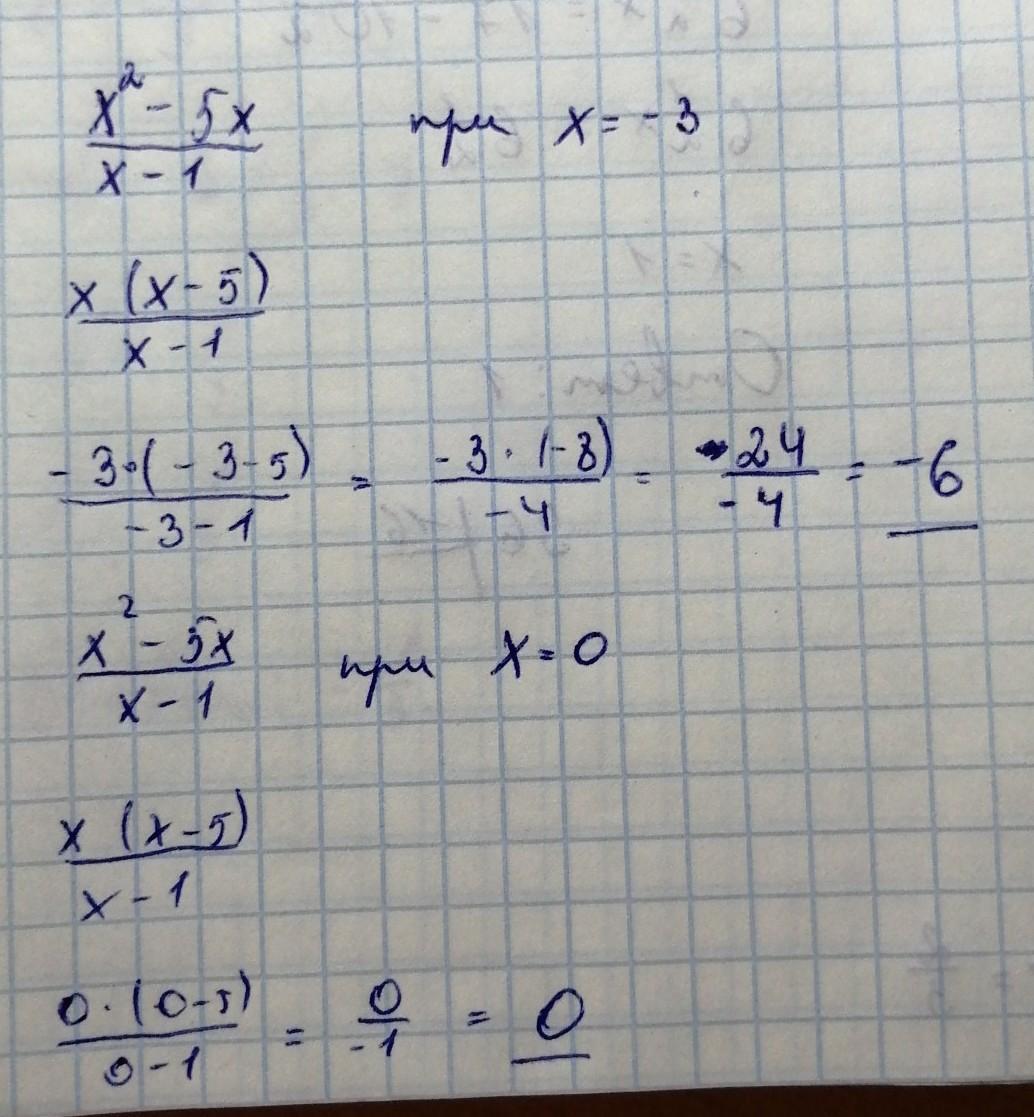 x² - 5x / x - 1 при x = -3
x (x - 5) / x - 1
-3·(-3-5) / -3-1 = -3·(-8) / -4 = 24 / -4 = -6
x² - 5x / x - 1 при x = 0
x (x-5) / x - 1
0·(0-5) / 0-1 = 0 / -1 = 0